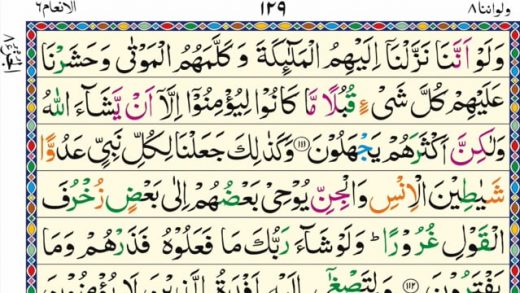 ولواننا ٨ ١٢٩ الانعام ٦
وَلَوْ اَنَّنَا نَزَّلْنَاۤ اِلَيْهِمُ الْمَلٰٓئِكَةَ وَكَلَّمَهُمُ الْمَوْتٰى وَحَشَرْنَا
عَلَيْهِمْ كُلَّ شَىْءٍ قُبُلًا مَّا كَانُوْا لِيُؤْمِنُوْۤا اِلَّاۤ اَنْ يَّشَآءَ اللّٰهُ
وَلٰكِنَّ اَكْثَرَهُمْ يَجْهَلُوْنَ ﴿١١١﴾ وَكَذٰلِكَ جَعَلْنَا لِكُلِّ نَبِىٍّ عَدُوًّا
شَيٰطِيْنَ الْاِنْسِ وَالْجِنِّ يُوْحِىْ بَعْضُهُمْ اِلٰى بَعْضٍ زُخْرُفَ
الْقَوْلِ غُرُوْرًا ؕ وَلَوْ شَآءَ رَبُّكَ مَا فَعَلُوْهُ فَذَرْهُمْ وَمَا
يَفْتَرُوْنَ ﴿١١٢﴾ وَلِتَصْغٰٓى اِلَيْهِ اَفْـِٕدَةُ الَّذِيْنَ لَا يُؤْمِنُوْنَ